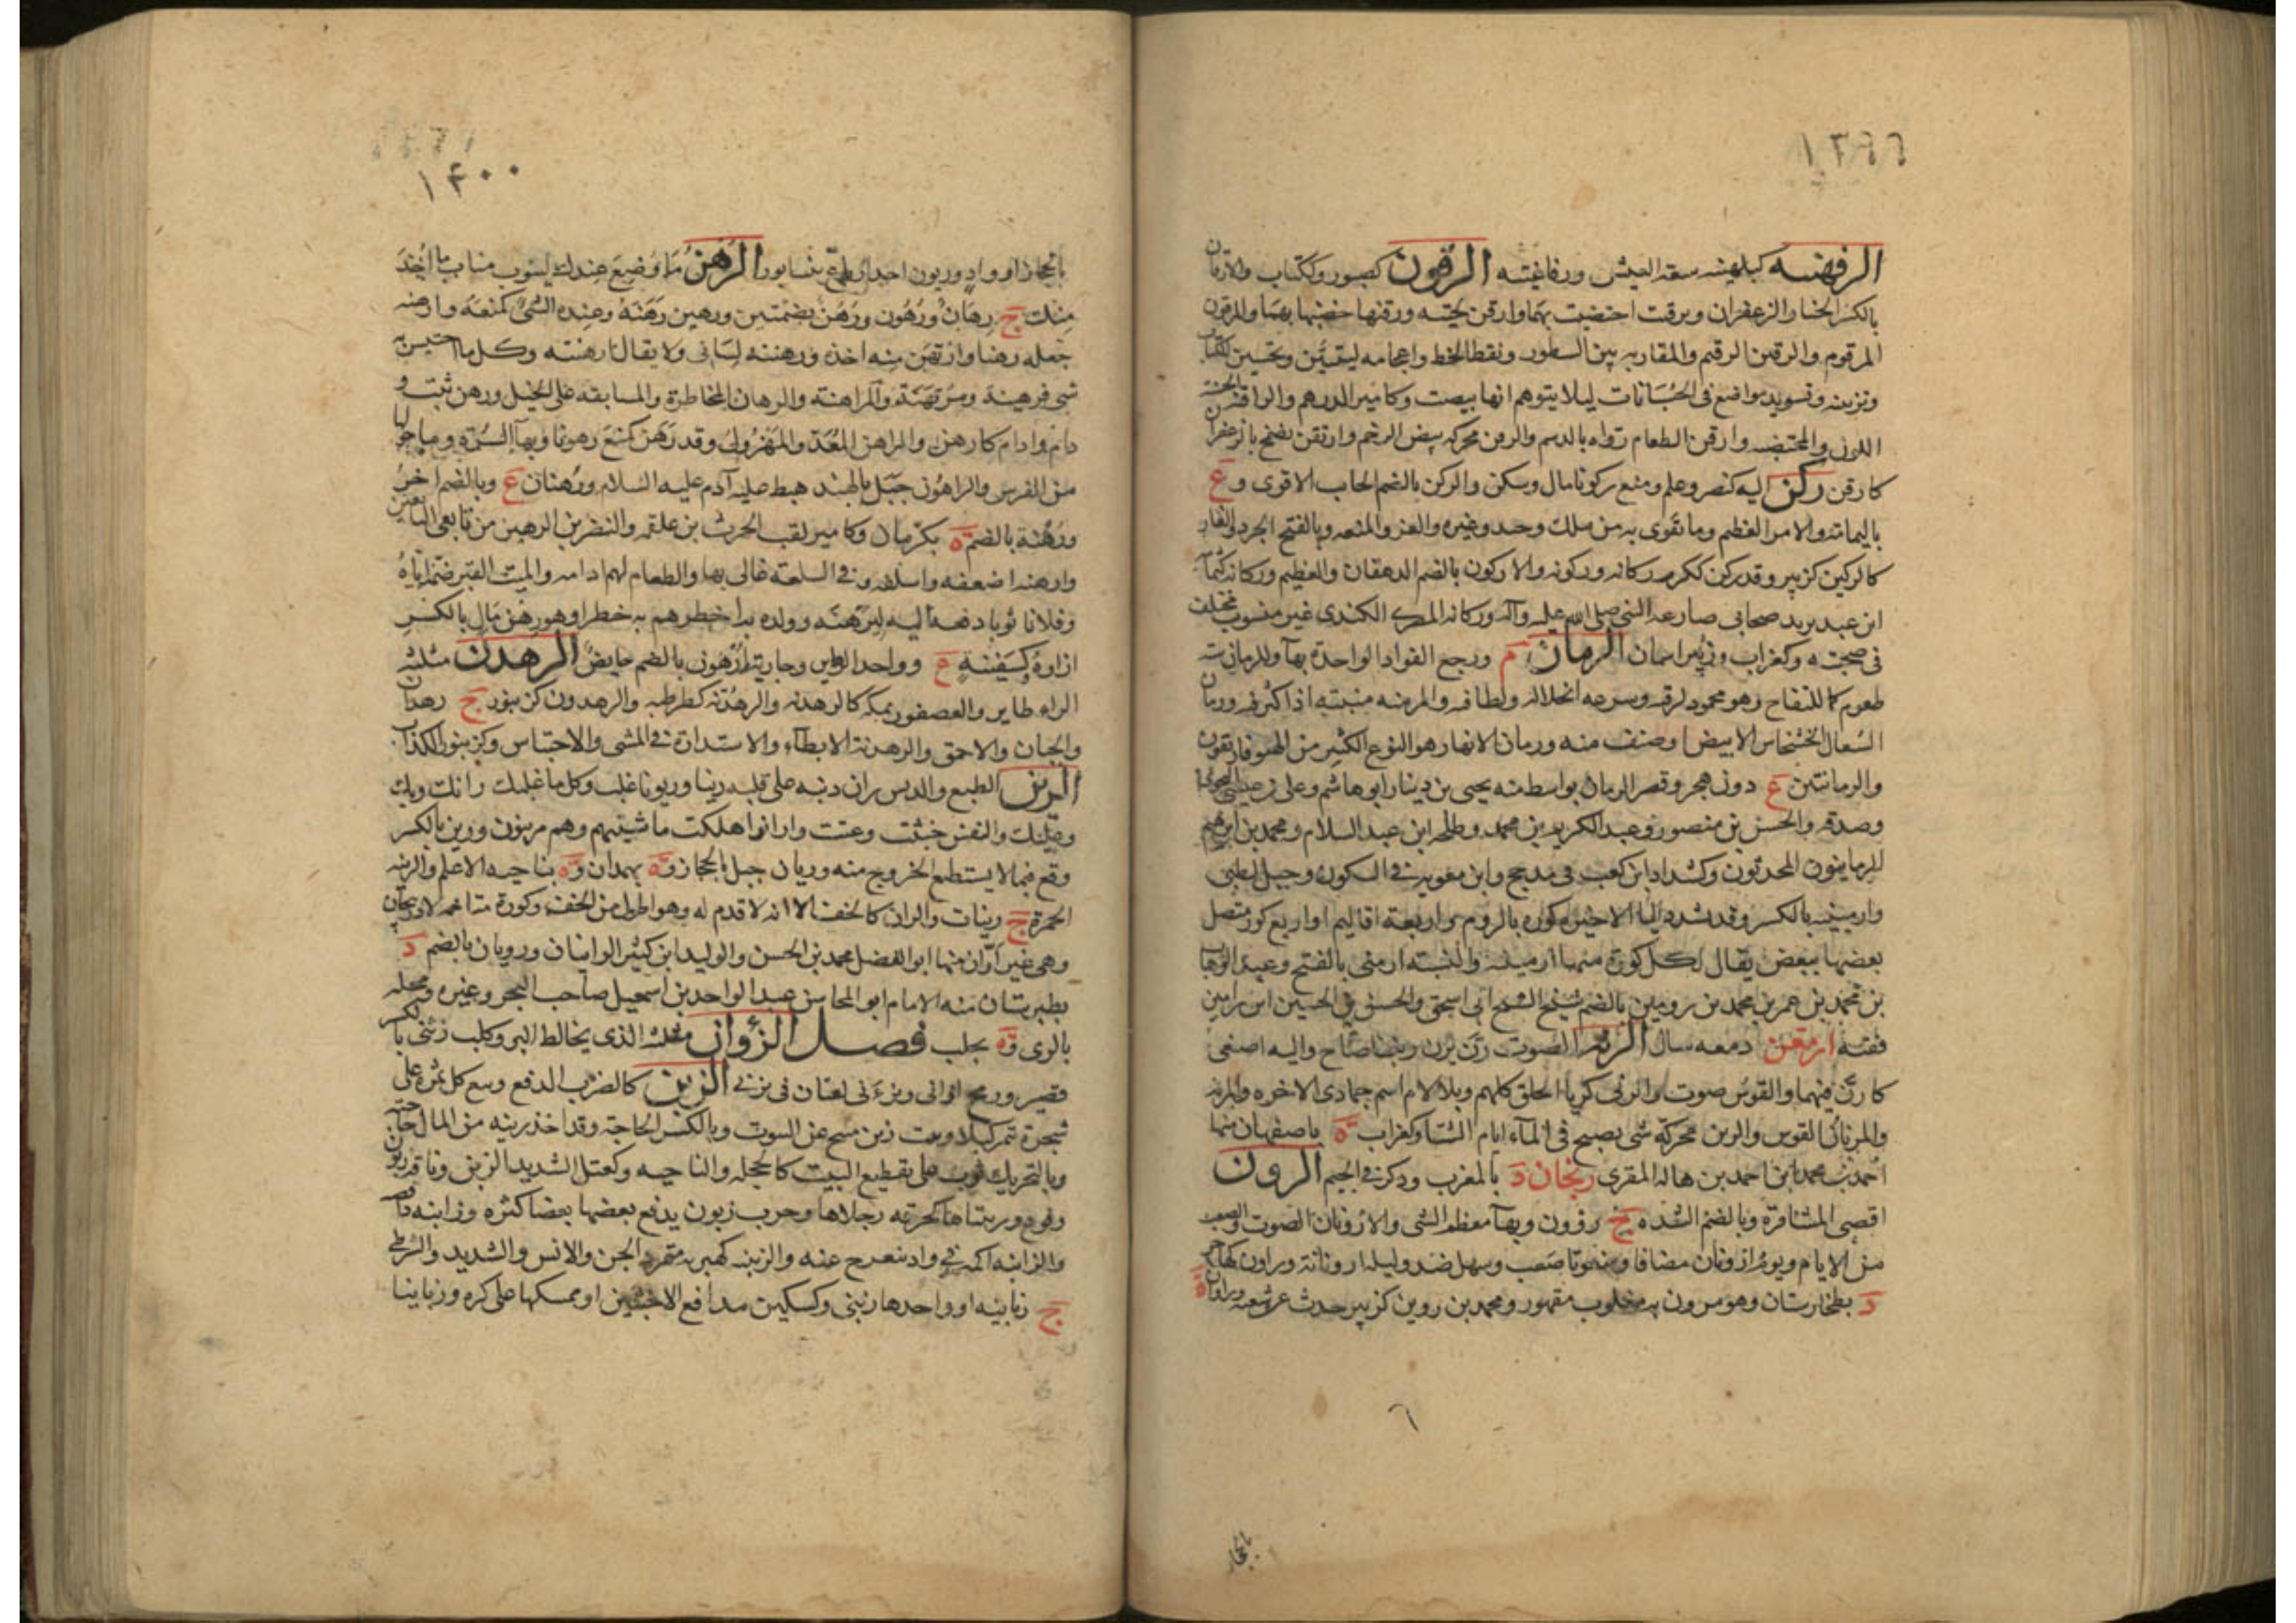 ١٣٩٩
الرفهنيه كبلهنيه سعة العيش ورفاغيته الرقون كصبور وكتاب والارقان
بالكسر الحنا والزعفران وبرقت اختضبت بهما وارقن لحيته ورقنها خضبها بهما والمرقون
المرقوم والرقين الرقيم والمقاربه بين السطور ونقط الخط واعجامه ليتبين وتحسين الكتاب
وتزيينه وتسويد مواضع فى الحسبانات ليلا يتوهم انها بيضت وكامير الدرهم والراقنه الحسنة
اللون والمختضبه وارقن الطعام رواه بالدسم والرقن محركه بيض الرخم وارتقن تضمخ بالزعفران
كارقن ركن اليه كنصر وعلم ومنع ركونا مال وسكن والركن بالضم الجانب الاقوى و ع
باليمامة والامر العظيم وما تقوى به من ملك وجند وغيره والعز والمنعه وبالفتح الجرد والفار
كالركين كزبير وقد ركن ككرم ركانه وركونه والاركون بالضم الدهقان والعظيم وركانه كثمامه
ابن عبد يزيد صحابى صارعه النبى صلى الله عليه وآله وركانه المصرى الكندى غير منسوب مختلف
فى صحبته وكغراب وزبير اسمان الرمان م ورجع الفواد الواحدة بهآ وللرمان سته
طعوم كما للتفاح وهو محمود لرقته وسرعه انحلاله ولطافته والمرمنه منبته اذا كثر فيه ورمان
السعال الخشخاش الابيض او صنف منه ورمان الانهار هو النوع الكبير من الهيوفاريقون
والرمانتين ع دون هجر وقصر الرمان بواسط منه يحيى بن دينار ابو هاشم وعلى بن عيسى النحوى
وصدقه والحسن بن منصور وعبد الكريم بن محمد وطلحه ابن عبد السلام ومحمد بن ابرهيم
الرمانيون المحدثون وكشداد ابن كعب فى مذحج وابن معويه فى السكون وجبل لطيى
وارمينيه بالكسر وقد تشدد اليا الاخيره كوره بالروم او اربعة اقاليم او اربع كور متصل
بعضها ببعض يقال لكل كورة منها ارمينيه والنسبه ارمنى بالفتح وعبد الوهاب
بن محمد بن عمر بن محمد بن رومين بالضم شيخ الشيخ ابى اسحق والحسن بن الحسين ابن رامين
فقيه ارمغن دمعه سال الرنه الصوت رن يرن رنينا صاح واليه اصغى
كارن فيهما والقوس صوت والرنى كربا الخلق كلهم وبلا لام اسم جمادى الاخره والمرنه
والمرنان القوس والرنن محركة شى يصيح فى المآء ايام الشتا وكغراب ة باصفهان منها
احمد بن محمد ابن احمد بن هاله المقرى رنجان د بالمغرب وذكر فى الجيم الرون
اقصى المشارة وبالضم الشده ج رؤون وبهآ معظم الشى والارونان الصوت والصعب
من الايام ويوم ارونان مضافا ومنعوتا صعب وسهل ضد وليله ارونانة وراون كهاجر
د بطخارستان وهو مرون به مغلوب مقهور ومحمد بن روين كزبير حدث عن شعبه وراوان ة
٦
بالحجاز
١٤٠٠
بالحجاز او واد وريون احد ارباع نيسابور الرهن ما وضع عندك لينوب مناب ما اخذ
منك ج رهان ورهون ورهن بضمتين ورهين رهنه وعنده الشى كمنعه وارهنه
جعله رهنا وارتهن منه اخذه ورهنته لسانى ولا يقال ارهنته وكل ما احتبس به
شى فرهينه ومرتهنة والمراهنة والرهان المخاطرة والمسابقه على الخيل ورهن ثبت و
دام وادام كارهن والراهن المعد والمهزول وقد رهن كمنع رهونا وبهآ السرة وما حولها
من الفرس والراهون جبل بالهند هبط عليه آدم عليه السلام ورهنان ع وبالضم اخر
ورهنة بالضم ة بكرمان وكامير لقب الحرث بن علقمه والنضر بن الرهين من تابعى التابعين
وارهنه اضعفه واسلفه وفى السلعة غالى بها والطعام لهم ادامه والميت القبر ضمنه اياه
وفلانا ثوبا دفعه اليه ليرهنه وولده به اخطرهم به خطرا وهو رهن مال بالكسر
ازاوه كسفينة ع وواحد الرهاين وجارية ارهون بالضم حايض الرهدن مثلثه
الراء طاير والعصفور بمكه كالرهدنه والرهدنه كطرطبه والرهدون كزنبور ج رهادن
والجبان والاحمق والرهدنة الابطآء والاستدارة فى المشى والاحتباس وكزنبور الكذاب
الرين الطبع والدنس ران ذنبه على قلبه رينا وريونا غلب وكل ما غلبك رانك وبك
وعليك والنفس خبثت وعتت وارانوا هلكت ماشيتهم وهم مرينون ورين بالكسر
وقع فيما لا يستطيع الخروج منه وريان جبل بالحجاز وة بهمدان وة بناحيه الاعلم والرينه
الخمرة ج رينات والران كالخف الا انه لا قدم له وهو اطول من الخف وكورة متاخمه لاذربيجان
وهى غير اران منها ابو الفضل محمد بن الحسن والوليد ابن كثير الرانيان ورويان بالضم د
بطبرستان منه الامام ابو المحاسن عبد الواحد بن اسمعيل صاحب البحر وغيره ومحله
بالرى وة بحلب فصل الزؤان مثلثه الذى يخالط البر وكلب زئنى بالكسر
قصير ورمح ازانى ويزءنى لغتان فى يزنى الزبن كالضرب الدفع وبيع كل ثمر على
شجرة تمر كيلا وبيت زبن متنح عن البيوت وبالكسر الحاجة وقد اخذ زبنه من المال حاجته
وبالتحريك ثوب على تقطيع البيت كالحجله والناحيه وكعتل الشديد الزبن وناقه زبون
دفوع وزبنتاها كحزقه رجلاها وحرب زبون يدفع بعضها بعضا كثره وزابنه دافعه
والزابنه اكمه فى واد ينعرج عنه والزبنيه كهبريه متمرد الجن والانس والشديد والشرطى
ج زبانيه او واحدها زبنى وكسكين مدافع الاخبثين او ممسكهما على كره وزبانيا